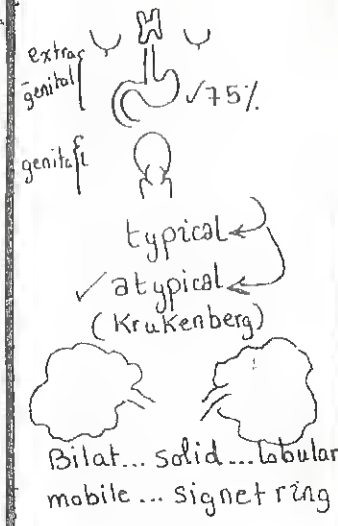 extra
genital
✓75%
genital
typical
✓ atypical
(Krukenberg)
Bilat... solid... lobular
mobile... signet ring